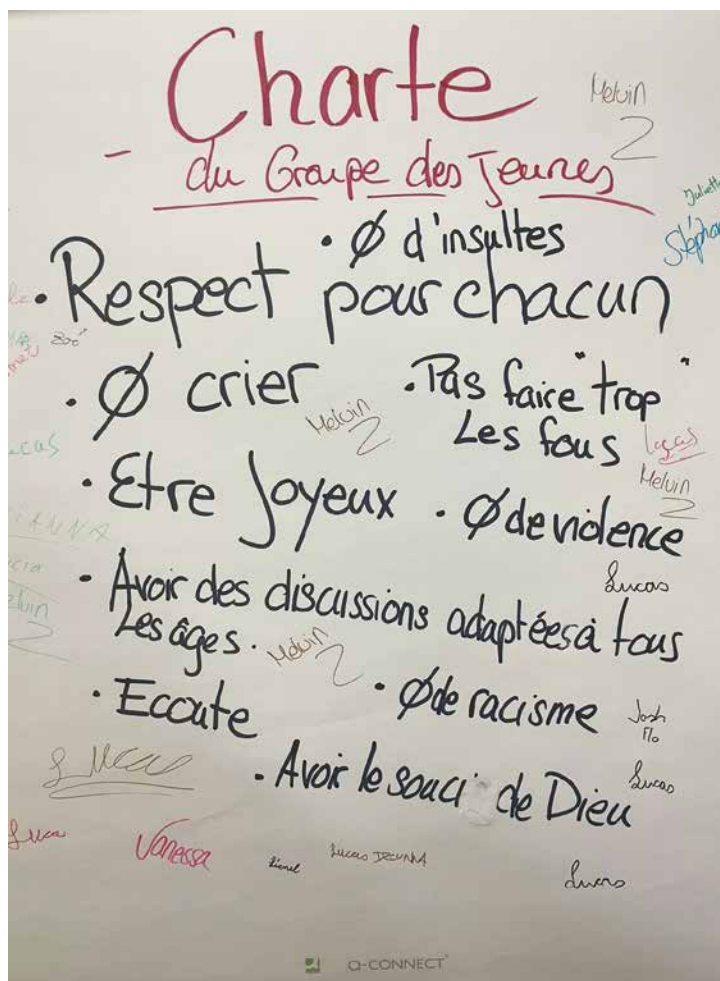 Charte
Melvin
- du Groupe des Jeunes
Juliette
• Ø d'insultes
• Respect pour chacun
Zoé
• Ø crier
• Pas faire "trop"
Les fous
Melvin
Lucas
Melvin
• Etre Joyeux
• Ø de violence
Lucas
• Avoir des discussions adaptées à tous
Les âges.
Melvin
• Ecoute
• Ø de racisme
Josh
Flo
Lucas
• Avoir le souci de Dieu
Lucas
Vanessa
Lionel
Lucas
Lucas
Q-CONNECT